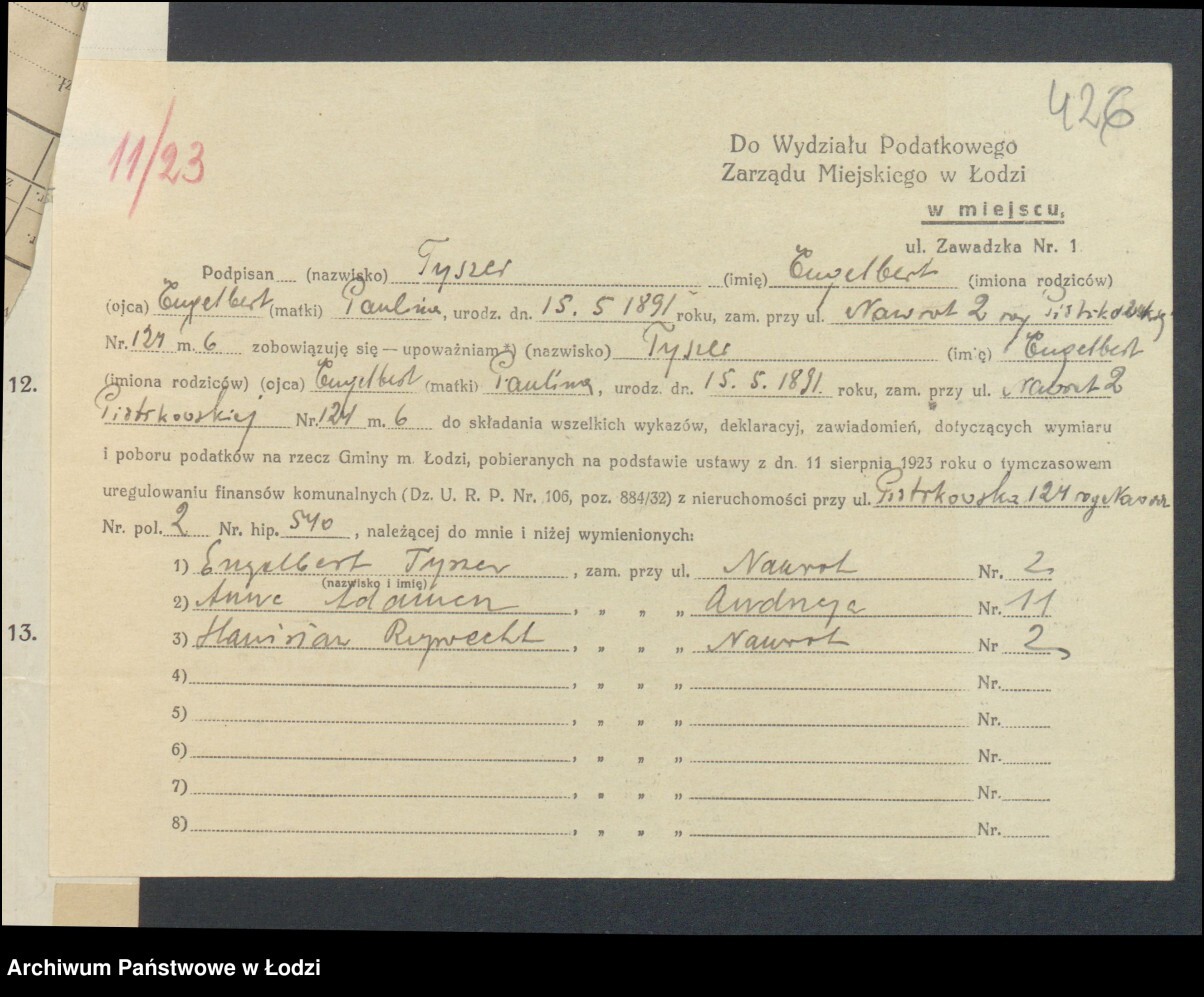 426
11/23
Do Wydziału Podatkowego
Zarządu Miejskiego w Łodzi
w miejscu,
ul. Zawadzka Nr. 1
Podpisan (nazwisko) Tyszer (imię) Engelbert (imiona rodziców)
(ojca) Engelbert (matki) Paulina, urodz. dn. 15. 5 1891 roku, zam. przy ul. Nawrot 2 rog Piotrkowskiej
Nr. 124 m. 6 zobowiązuję się — upoważniam *) (nazwisko) Tyszer (imię) Engelbert
12.
(imiona rodziców) (ojca) Engelbert (matki) Paulina, urodz. dn. 15. 5. 1891. roku, zam. przy ul. Nawrot 2
Piotrkowskiej Nr. 124 m. 6 do składania wszelkich wykazów, deklaracyj, zawiadomień, dotyczących wymiaru
i poboru podatków na rzecz Gminy m. Łodzi, pobieranych na podstawie ustawy z dn. 11 sierpnia 1923 roku o tymczasowem
uregulowaniu finansów komunalnych (Dz. U. R. P. Nr. 106, poz. 884/32) z nieruchomości przy ul. Piotrkowska 124 rog Nawrot
Nr. pol. 2 Nr. hip. 540, należącej do mnie i niżej wymienionych:
1) Engelbert Tyszer, zam. przy ul. Nawrot Nr. 2
(nazwisko i imię)
2) Anna , „ „ „ Andrzeja Nr. 11
13.
3) Ruprecht, „ „ „ Nawrot Nr 2
4) , „ „ „ Nr.
5) , „ „ „ Nr.
6) , „ „ „ Nr.
7) , „ „ „ Nr.
8) , „ „ „ Nr.
Archiwum Państwowe w Łodzi